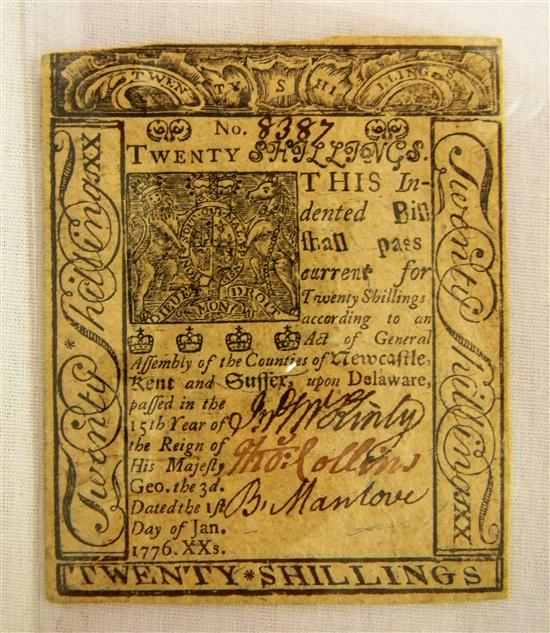 TWEN TY S HI LLINGS
No. 8387
TWENTY SHILLINGS.
THIS In-
dented Bill
shall pass
current for
Twenty Shillings
according to an
Act of General
Assembly of the Counties of Newcastle,
Kent and Sussex, upon Delaware,
passed in the
15th Year of
the Reign of
His Majesty
Geo. the 3d.
Dated the 1st
Day of Jan.
1776. XXs.
Jno McKinly
Thos: Collins
B. Manlove
HONI SOIT QUI MAL Y PENSE
DIEU ET MON DROIT
Twenty*ShillingsXX
Twenty ShillingsXX
TWENTY*SHILLINGS